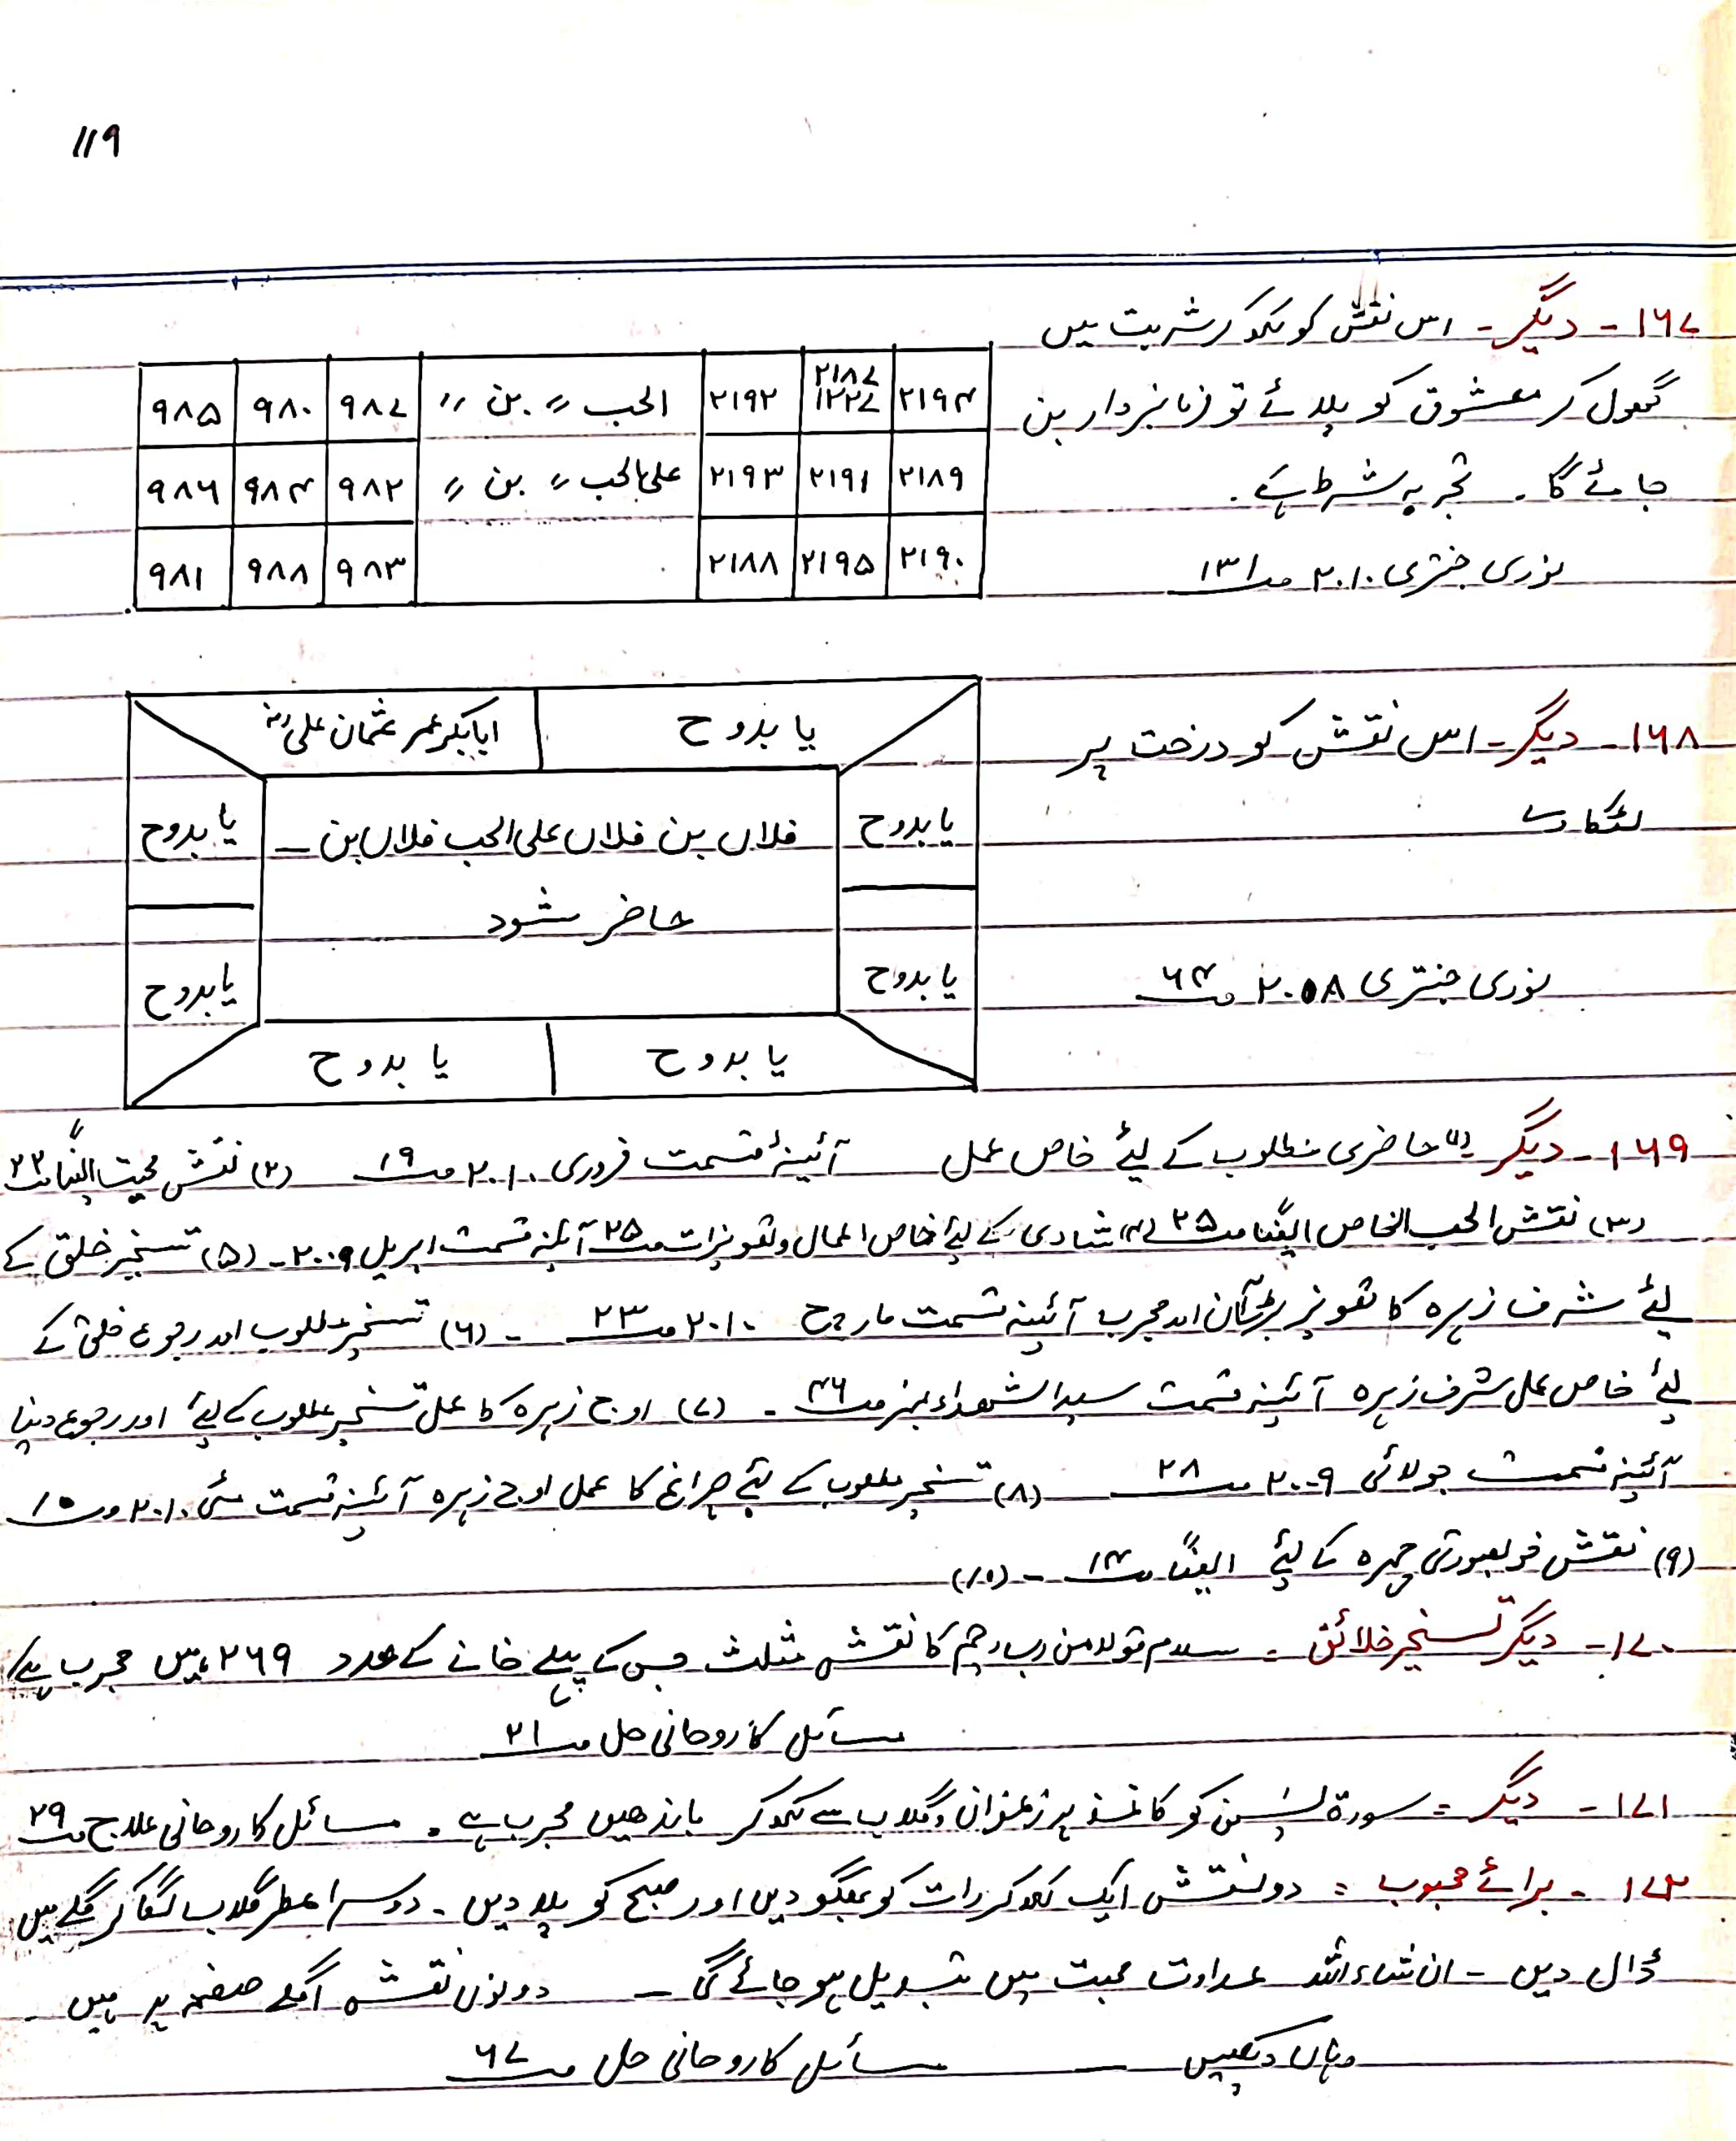 ۱۱۹
۱۶۷- دیگر- اس نقش کو لکھ کر شربت میں
گھول کر معشوق کو پلائے تو فرمانبردار بن
جائے گا۔ تجربہ شرط ہے۔
نوری جنتری ۲۰۱۰ صـ۱۳۱
۲۱۹۴ ۲۱۸۷ ۱۲۲۷ ۲۱۹۲ الحب ״ بن ״ ۹۸۷ ۹۸۰ ۹۸۵
۲۱۸۹ ۲۱۹۱ ۲۱۹۳ علی الحب ״ بن ״ ۹۸۲ ۹۸۴ ۹۸۶
۲۱۹۰ ۲۱۹۵ ۲۱۸۸ ۹۸۳ ۹۸۸ ۹۸۱
۱۶۸- دیگر- اس نقش کو درخت پر
لٹکا دے
نوری جنتری ۲۰۰۸ صـ۶۴
یا بدوح ابابکر عمر عثمان علی رض
یا بدوح فلاں بن فلاں علی الحب فلاں بن – یا بدوح
حاضر شود
یا بدوح یا بدوح
یا بدوح یا بدوح
۱۶۹- دیگر (۱) حاضری مطلوب کے لئے خاص عمل آئینۂ قسمت فروری ۲۰۱۰ صـ۱۹ (۲) نقش محبت ایضاً صـ۲۲
(۳) نقش الحب الخاص ایضاً صـ۲۵ (۴) شادی کے لئے خاص اعمال و تعویزات صـ۲۵ آئینہ قسمت اپریل ۲۰۰۹- (۵) تسخیر خلق کے
لئے شرف زہرہ کا تعویز آسان اور مجرب آئینہ قسمت مارچ ۲۰۱۰ صـ۲۳ - (۶) تسخیر مطلوب اور رجوع خلق کے
لئے خاص عمل شرف زہرہ آئینہ قسمت سید الشھداء نمبر صـ۴۶ - (۷) اوج زہرہ کا عمل تسخیر مطلوب کے لئے اور رجوع دنیا
آئینہ قسمت جولائی ۲۰۰۹ صـ۲۸ (۸) تسخیر مطلوب کے لئے چراغ کا عمل اوج زہرہ آئینہ قسمت مئی ۲۰۱۰ صـ۱۵
(۹) نقش خوبصورتی چہرہ کے لئے ایضاً صـ۱۴ - (۱۰)
۱۷۰- دیگر تسخیر خلائق = سلام قولا من رب رحیم کا نقش مثلث جس کے پہلے خانے کے عدد ۲۶۹ ہیں مجرب ہے
مسائل کا روحانی حل صـ۲۱
۱۷۱- دیگر = سورۃ یٰسین کو کاغذ پر زعفران و گلاب سے لکھ کر باندھیں مجرب ہے۔ مسائل کا روحانی علاج صـ۲۹
۱۷۲- برائے محبوب = دو نقش ایک لکھ کر رات کو بھگو دیں اور صبح کو پلا دیں۔ دوسرا عطر گلاب لگا کر گلے میں
ڈال دیں - ان شاء اللہ عداوت محبت میں تبدیل ہو جائے گی – دونوں نقش اگلے صفحہ پر ہیں۔
وہاں دیکھیں – مسائل کا روحانی حل صـ۶۷